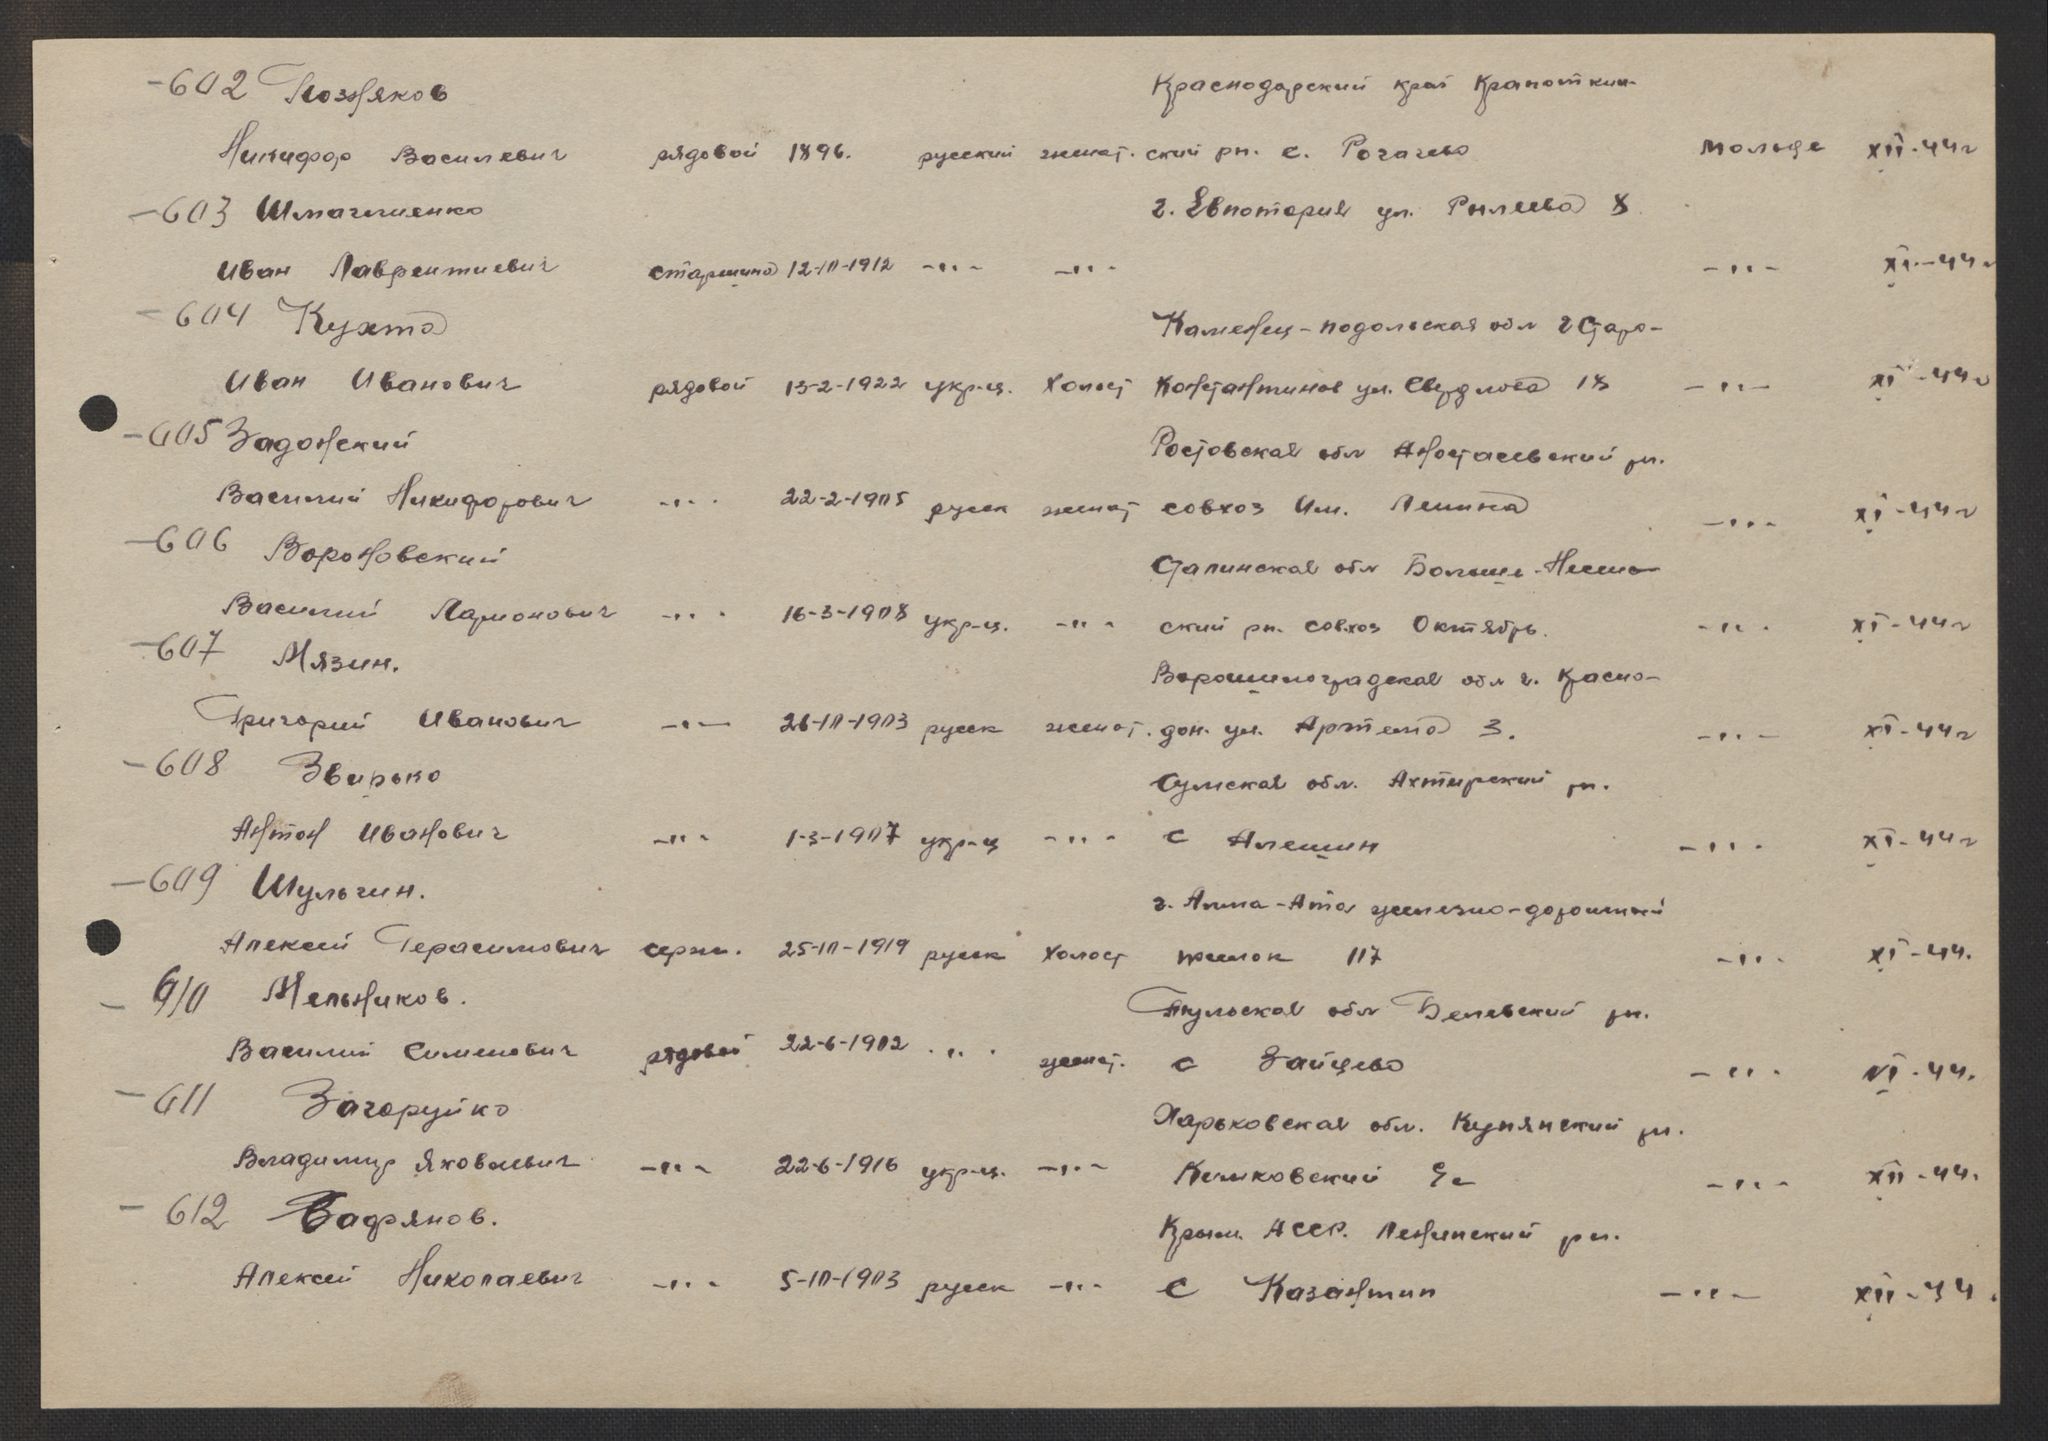 -602 Позняков Краснодарский край Крапоткин-
Никифор Василевич рядовой 1896. русский женат. ский рн. с. Рогачево Мольде XII-44г
-603 Шмачешенко г. Евпотория ул. Рылеева 8
Иван Лаврентиевич старшина 12-10-1912 -"- -"- -"- XI-44г
-604 Кухта Каменец-подольская обл г Старо-
Иван Иванович рядовой 13-2-1922 укр-ц. Холост Константинов ул. Свердлова 18 -"- XI-44г
-605 Задонский Ростовская обл Анастасевский рн.
Василий Никифорович -"- 22-2-1905 русск женат совхоз Им. Ленина -"- XI-44г
-606 Вороновский Сталинская обл Больше-
Василий Ларионович -"- 16-3-1908 укр-ц. -"- ский рн. совхоз Октябрь. -"- XI-44г
-607 Мязин. Ворошилоградская обл г. Красно-
Григорий Иванович -"- 26-10-1903 русск женат. дон. ул. Артема 3. -"- XI-44г
-608 Звирько Сумская обл. Ахтирский рн.
Антон Иванович -"- 1-3-1907 укр-ц -"- с Алешин -"- XI-44г
-609 Шульгин. г. Алма-Ата железно-дорожный
Алексей Герасимович серж. 25-10-1919 русск Холост 117 -"- XI-44.
-610 Мельников. Тульская обл Белевский рн.
Василий Семенович рядовой 22-6-1902 -"- женат. с Зайцево -"- VI-44.
-611 Загоруйко Харьковская обл. Купянский рн.
Владимир Яковлевич -"- 22-6-1916 укр-ц. -"- -"- XII-44.
-612 Вафрянов. Крым. АССР. Ленинский рн.
Алексей Николаевич -"- 5-10-1903 русск -"- С Казантип -"- XII-44.